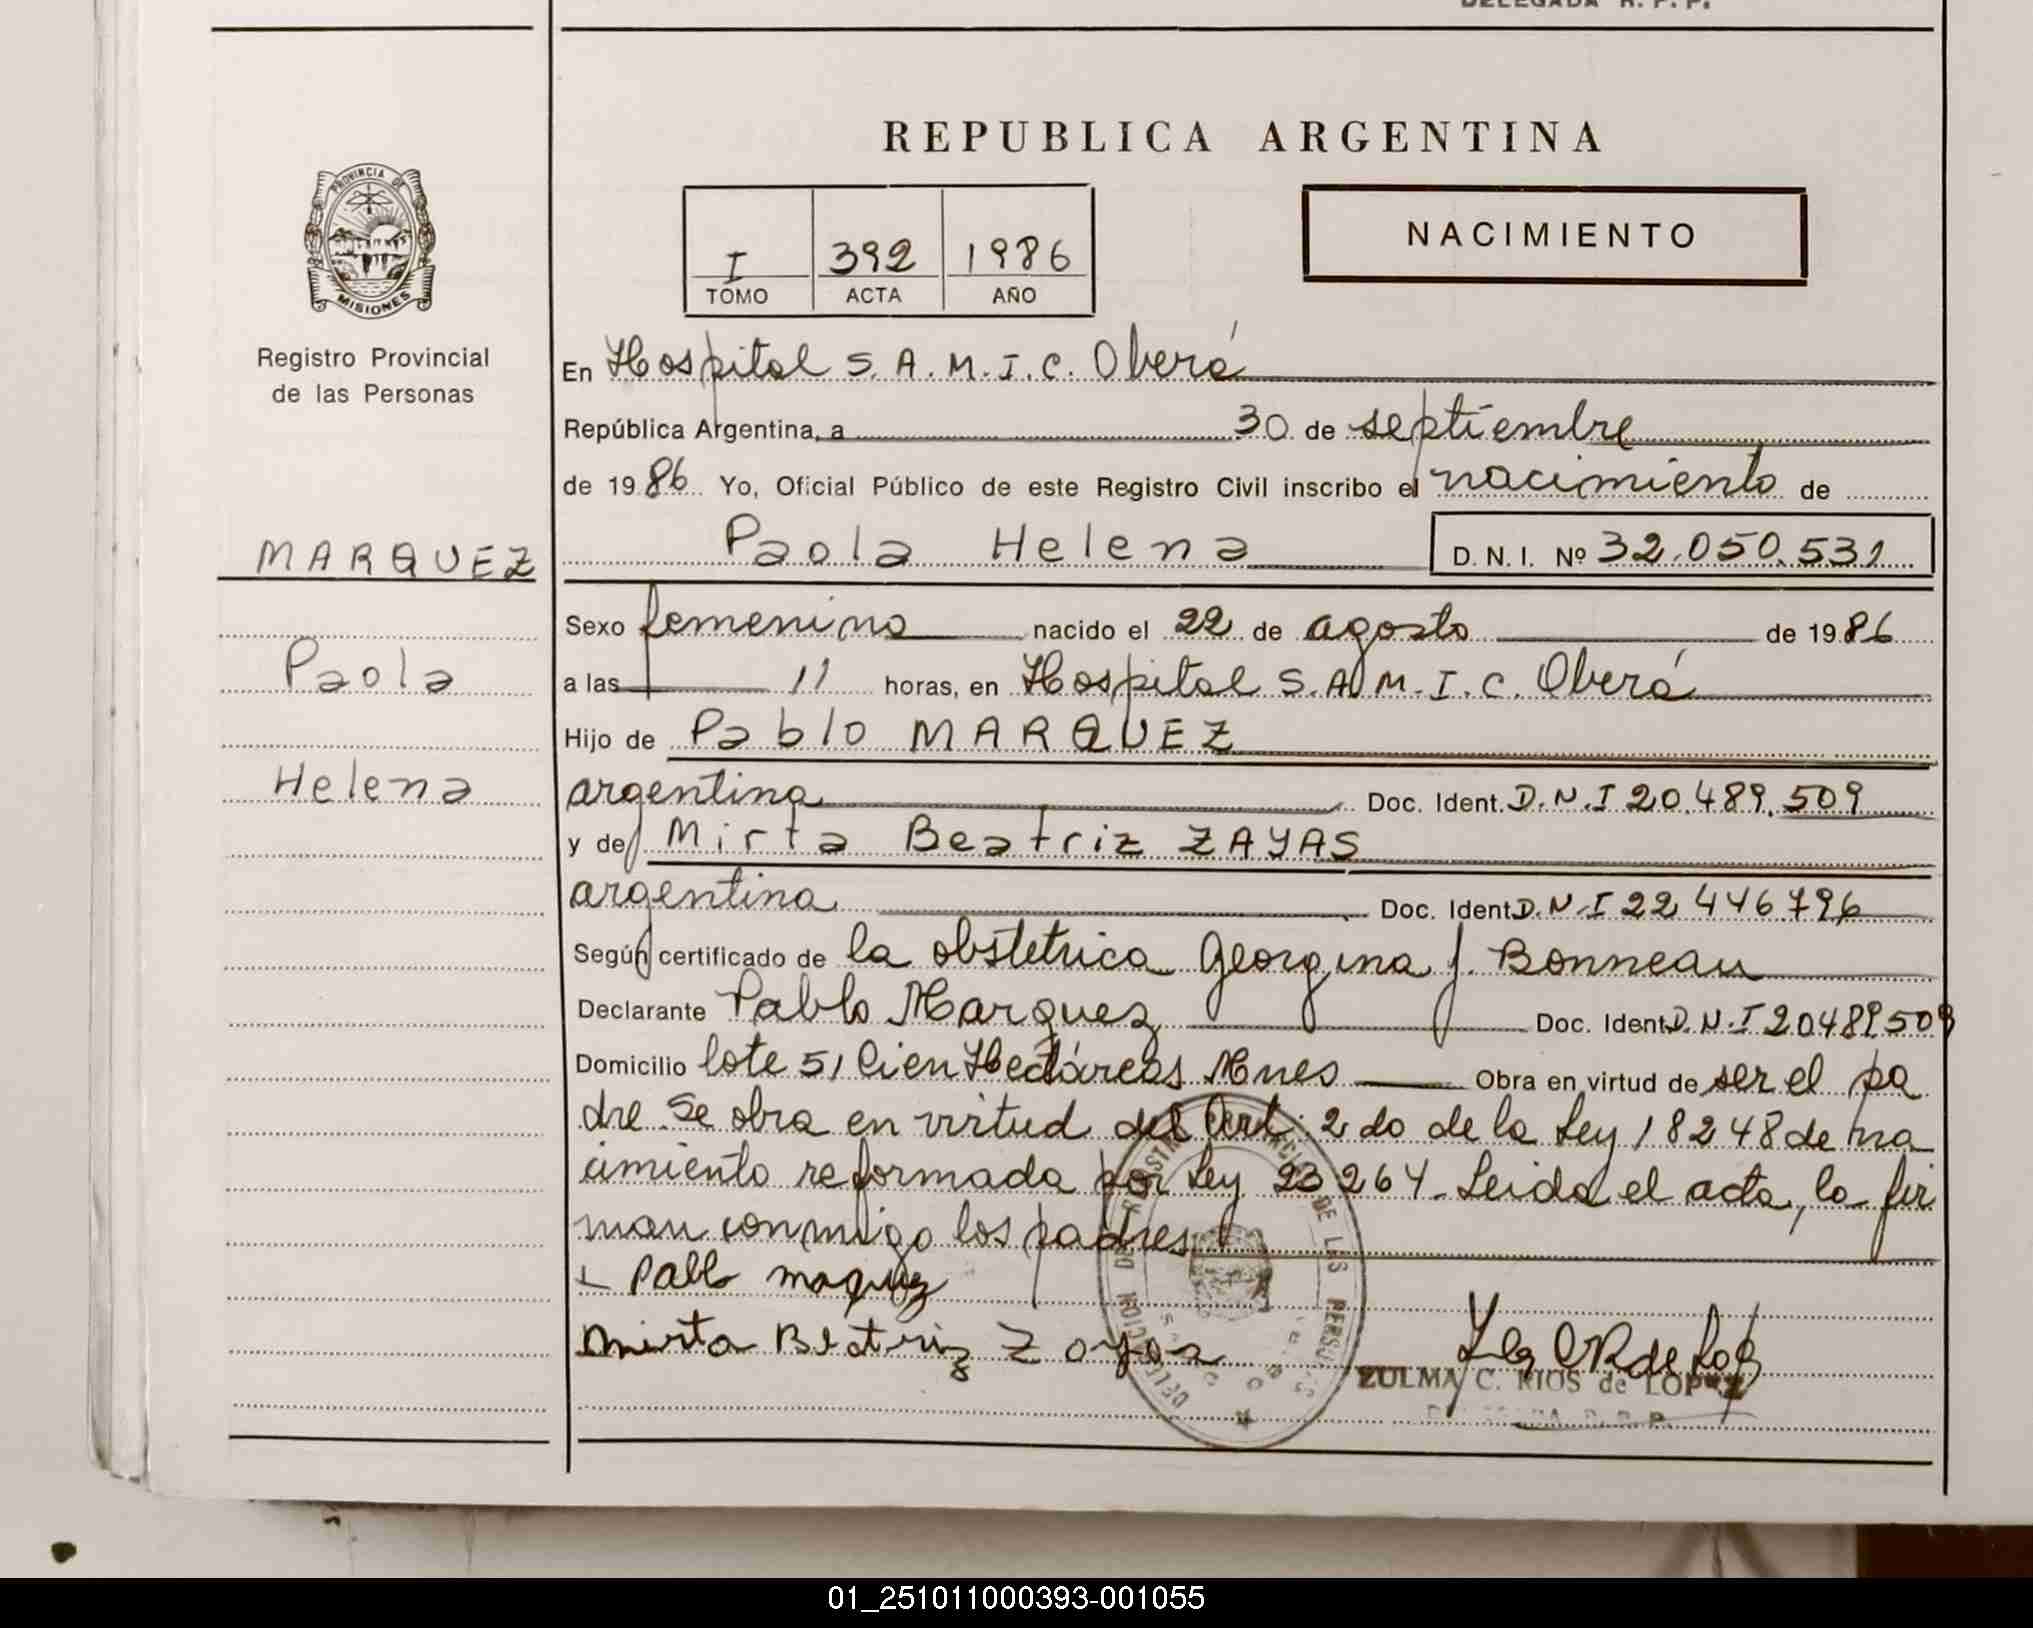 DELEGADA R. P. P.
REPUBLICA ARGENTINA
PROVINCIA DE
MISIONES
I 392 1986
TOMO ACTA AÑO
NACIMIENTO
Registro Provincial
de las Personas
En Hospital S. A. M. I. C. Oberá
República Argentina, a 30 de septiembre
de 1986 Yo, Oficial Público de este Registro Civil inscribo el nacimiento de
MARQUEZ
Paola Helena D. N. I. Nº 32.050.531
Sexo femenino nacido el 22 de agosto de 1986
Paola
a las 11 horas, en Hospital S. A. M. I. C. Oberá
Hijo de Pablo MARQUEZ
Helena
argentina Doc. Ident. D.N.I 20.489.509
y de Mirta Beatriz ZAYAS
argentina Doc. Ident. D.N.I 22 446.796
Según certificado de la obstetrica Georgina J. Bonneau
Declarante Pablo Marquez Doc. Ident. D.N.I 20489509
Domicilio lote 51 Cien Hectáreas Mnes Obra en virtud de ser el pa
dre. Se obra en virtud del Art. 2 do de la Ley 18248 de na
cimiento reformada por Ley 23264. Leida el acta, la fir
man conmigo los padres
Pablo Maquez
Mirta Beatriz Zayas
ZULMA C. RIOS de LOPEZ
DELEGADA R. P. P.
01_251011000393-001055